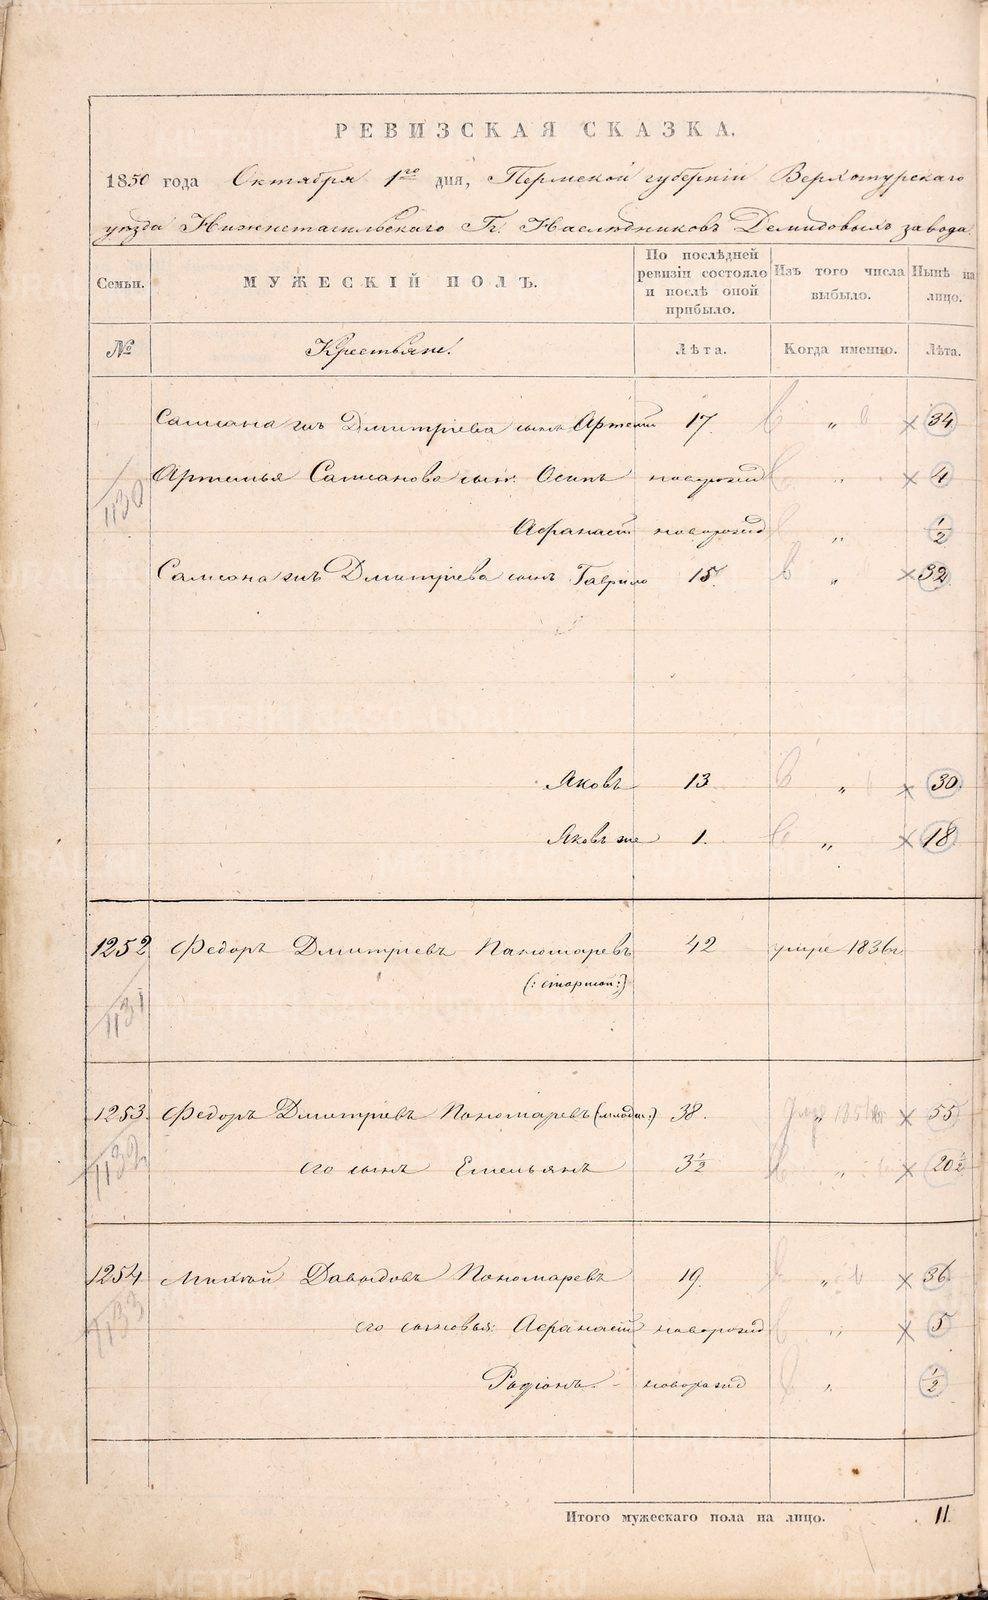 РЕВИЗСКАЯ СКАЗКА.
1850 года Октября 1го дня, Пермской губернiи Верхотурскаго
уѣзда Нижнетагильскаго Гг. Наслѣдниковъ Демидовыхъ завода.
Семьи. МУЖЕСКIЙ ПОЛЪ. По послѣдней ревизiи состояло и послѣ оной прибыло. Изъ того числа выбыло. Нынѣ на лицо.
№ Крестьяне. Лѣта. Когда именно. Лѣта.
Самсона Дмитрiева сынъ Артемiй 17. „ 34
1130 Артемья Самсонова сын: Осипъ новорожд „ 4
Афанасiй новорожд „ 1/2
Самсона Дмитрiева сынъ Гаврило 15. „ 32
Яковъ 13 „ 30
Яковъ же 1. „ 18
1252 Федоръ Дмитрiевъ Паномаревъ 42 умре 1836г.
(: старшой :)
1131
1253. Федоръ Дмитрiевъ Пономаревъ (младш:) 38. „ 55
1132 его сынъ Емельянъ 3 1/2 „ 20 1/2
1254 Михѣй Давыдовъ Пономаревъ 19. „ 36
1133 его сыновья: Афанасiй новорожд „ 5
Родiонъ. новорожд „ 1/2
Итого мужескаго пола на лицо. 11.
METRIKI.GASO-URAL.RU